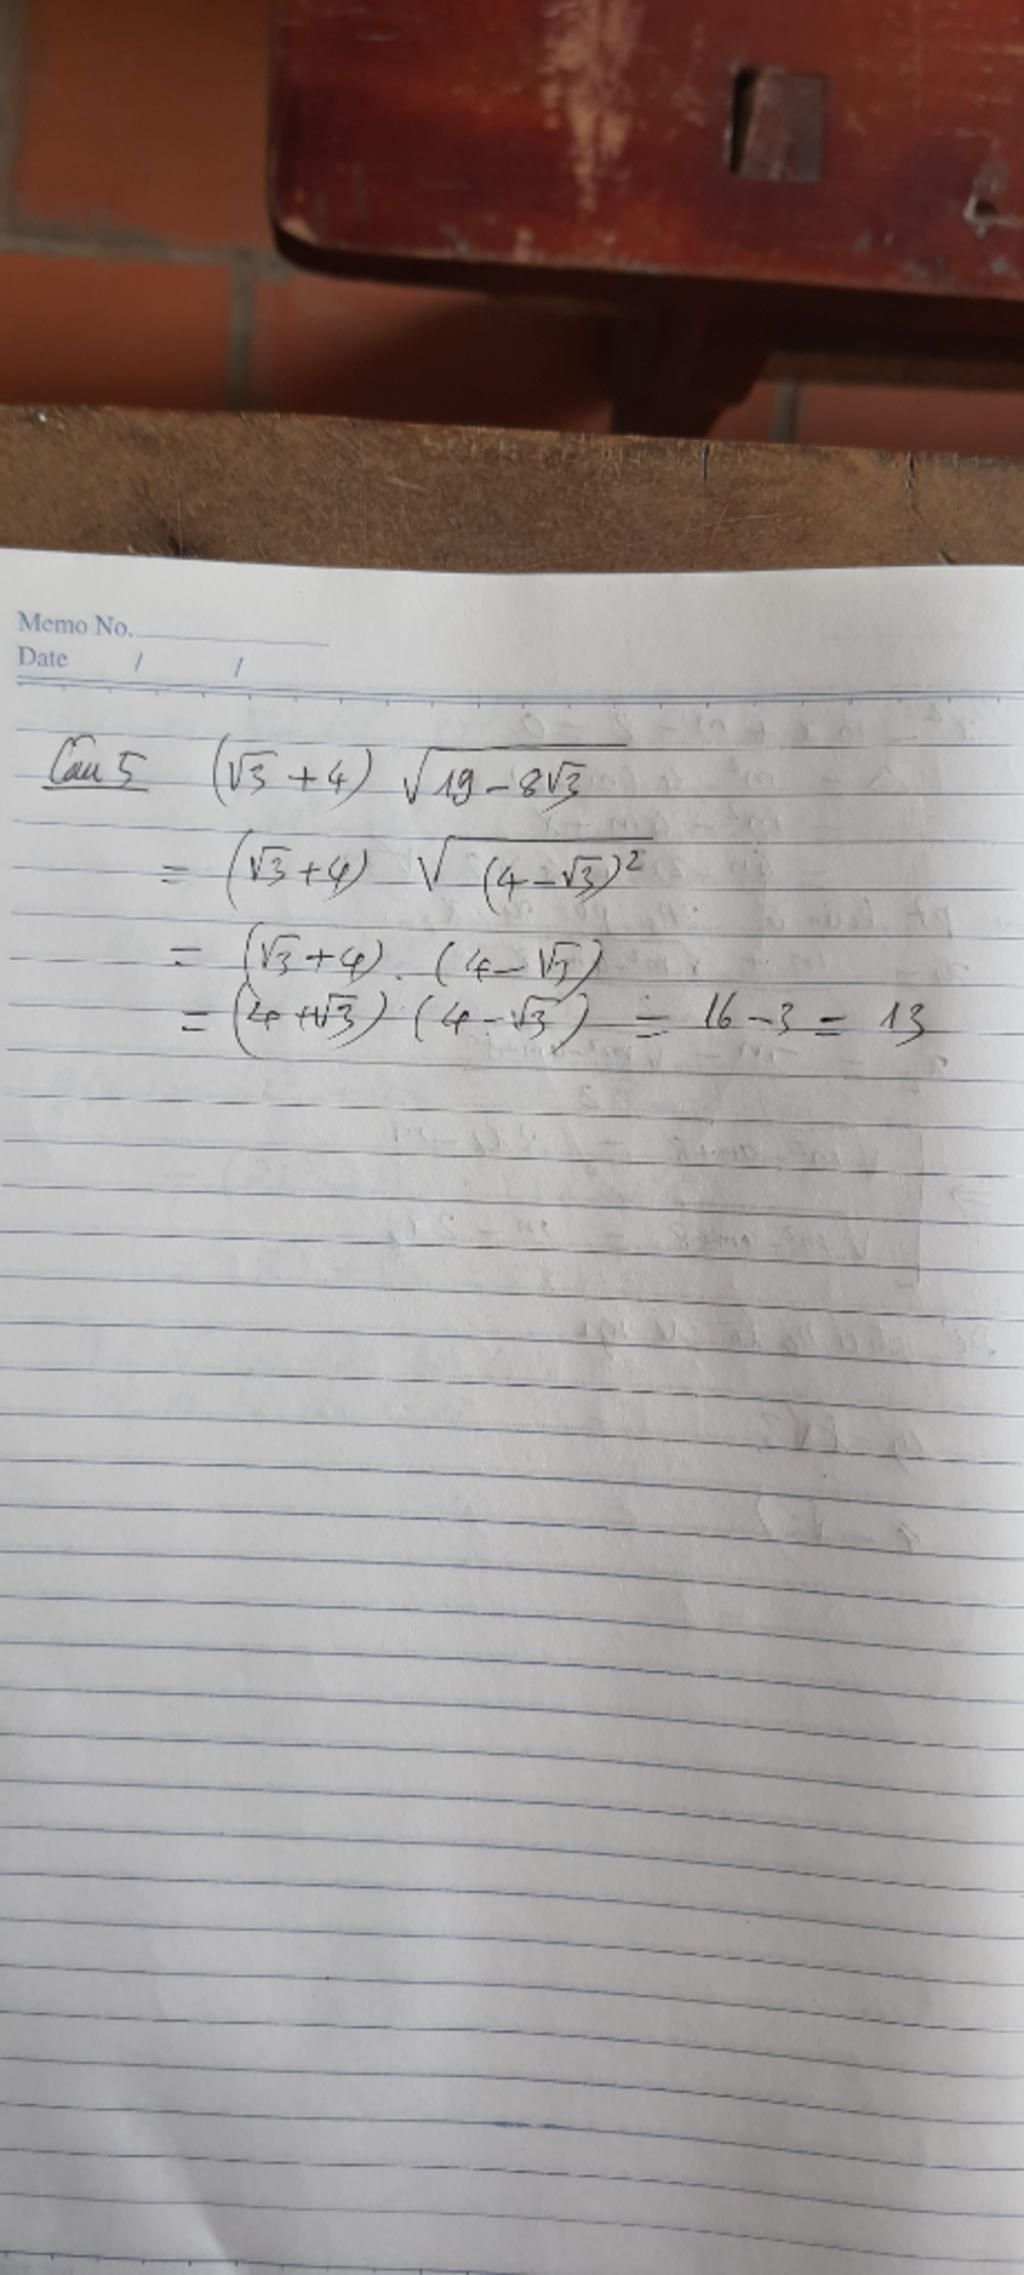 Memo No.
Date / /
Câu 5 (√3 + 4) √19 - 8√3
= (√3 + 4) √(4 - √3)²
= (√3 + 4) . (4 - √3)
= (4 + √3) (4 - √3) = 16 - 3 = 13